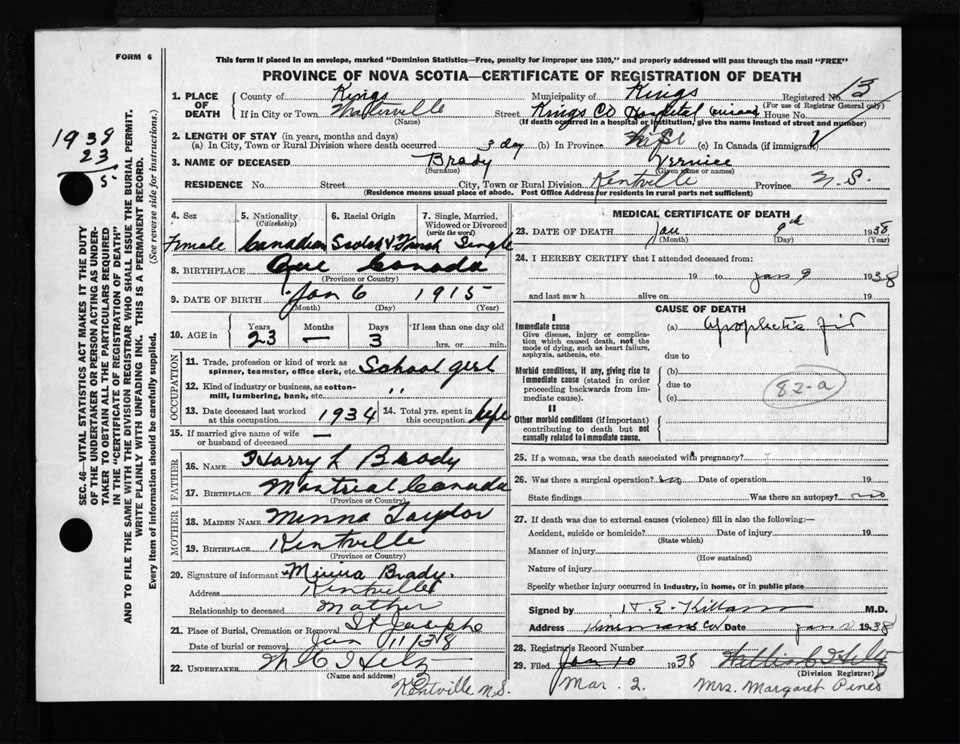 FORM 6
This form if placed in an envelope, marked "Dominion Statistics—Free, penalty for improper use $300," and properly addressed will pass through the mail "FREE"
PROVINCE OF NOVA SCOTIA—CERTIFICATE OF REGISTRATION OF DEATH
1938
23
5
SEC. 46—VITAL STATISTICS ACT MAKES IT THE DUTY OF THE UNDERTAKER OR PERSON ACTING AS UNDERTAKER TO OBTAIN ALL THE PARTICULARS REQUIRED IN THE "CERTIFICATE OF REGISTRATION OF DEATH" AND TO FILE THE SAME WITH THE DIVISION REGISTRAR WHO SHALL ISSUE THE BURIAL PERMIT.
WRITE PLAINLY WITH UNFADING INK. THIS IS A PERMANENT RECORD.
Every item of information should be carefully supplied. (See reverse side for instructions.)
1. PLACE OF DEATH County of Kings Municipality of Kings Registered No. 13
(For use of Registrar General only)
If in City or Town Waterville Street Kings Co Hospital
(Name) (If death occurred in a hospital or institution, give the name instead of street and number)
2. LENGTH OF STAY (in years, months and days)
(a) In City, Town or Rural Division where death occurred 3 day (b) In Province (c) In Canada (if immigrant)
3. NAME OF DECEASED Brady
(Surname) (Given name or names)
RESIDENCE No. Street City, Town or Rural Division Kentville Province N.S.
(Residence means usual place of abode. Post Office Address for residents in rural parts not sufficient)
4. Sex
Female
5. Nationality
(Citizenship)
Canadian
6. Racial Origin
Scotch & French
7. Single, Married, Widowed or Divorced
(write the word)
Single
8. BIRTHPLACE Que Canada
(Province or Country)
9. DATE OF BIRTH Jan 6 1915
(Month) (Day) (Year)
10. AGE in Years Months Days If less than one day old
23 — 3 hrs. or min.
OCCUPATION
11. Trade, profession or kind of work as spinner, teamster, office clerk, etc. School girl
12. Kind of industry or business, as cotton-mill, lumbering, bank, etc. "
13. Date deceased last worked at this occupation 1934 14. Total yrs. spent in this occupation
15. If married give name of wife or husband of deceased —
FATHER
16. NAME Harry L Brady
17. BIRTHPLACE Montreal Canada
(Province or Country)
MOTHER
18. MAIDEN NAME Minna Taylor
19. BIRTHPLACE Kentville
(Province or Country)
20. Signature of informant Minna Brady.
Address Kentville
Relationship to deceased Mother
21. Place of Burial, Cremation or Removal St Josephs
Date of burial or removal Jan 11 38
22. UNDERTAKER
(Name and address)
Kentville N.S.
MEDICAL CERTIFICATE OF DEATH
23. DATE OF DEATH Jan 9th 1938
(Month) (Day) (Year)
24. I HEREBY CERTIFY that I attended deceased from:
19 to Jan 9 1938
and last saw h alive on 19
CAUSE OF DEATH
I
Immediate cause
Give disease, injury or complication which caused death, not the mode of dying, such as heart failure, asphyxia, asthenia, etc.
(a)
due to
Morbid conditions, if any, giving rise to immediate cause (stated in order proceeding backwards from immediate cause).
(b)
due to
(c)
82-a
II
Other morbid conditions (if important) contributing to death but not causally related to immediate cause.
25. If a woman, was the death associated with pregnancy?
26. Was there a surgical operation? no Date of operation 19
State findings Was there an autopsy? no
27. If death was due to external causes (violence) fill in also the following:—
Accident, suicide or homicide? Date of injury 19
(State which)
Manner of injury
(How sustained)
Nature of injury
Specify whether injury occurred in industry, in home, or in public place
Signed by H E Killam M.D.
Address Date Jan 1938
28. Registrar's Record Number
29. Filed Jan 10 1938
(Division Registrar)
Mar. 2. Mrs. Margaret Pineo